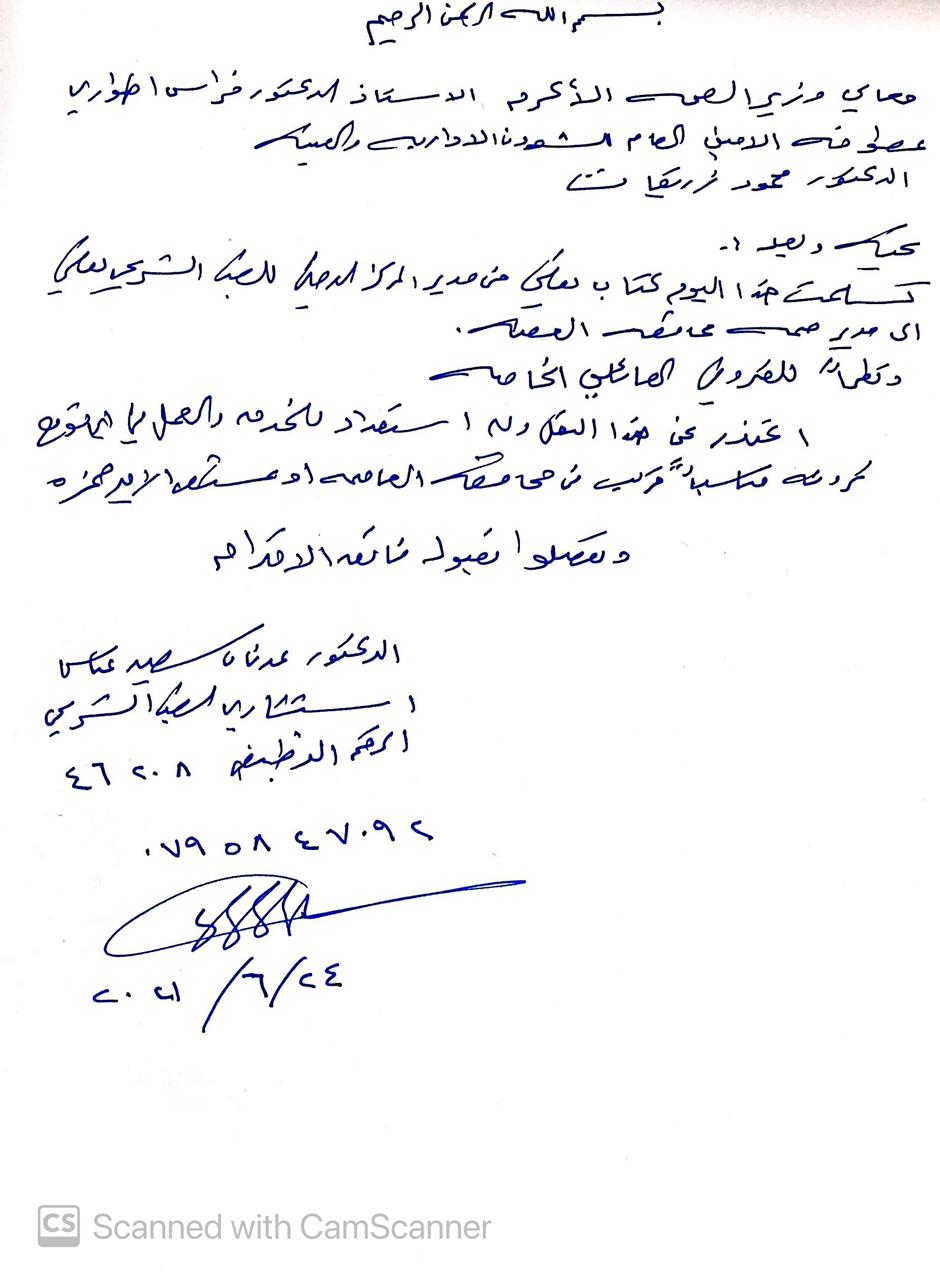 بسم الله الرحمن الرحيم
معالي وزير الصحة الأكرم الاستاذ الدكتور فراس الهواري
عطوفة الامين العام للشؤون الادارية والفنية
الدكتور محمود زريقات
تحية وبعد :-
تسلمت هذا اليوم كتاب نقلي من مدير المركز الوطني للطب الشرعي نقلي
الى مدير صحة محافظة العقبة.
ونظراً للظروف العائلي الخاصة
اعتذر عن هذا النقل ولي استعداد للخدمة والعمل في اي موقع
ترونه مناسباً قريب من محافظة العاصمة او مستشفى الامير حمزه
وتفضلوا بقبول فائق الاحترام
الدكتور عدنان سعيد عباس
استشاري الطب الشرعي
الرقم الوظيفي ٤٦٢٠٨
٠٧٩٥٨٤٧٠٩٢
٢٠٢١/٦/٢٤
CS Scanned with CamScanner